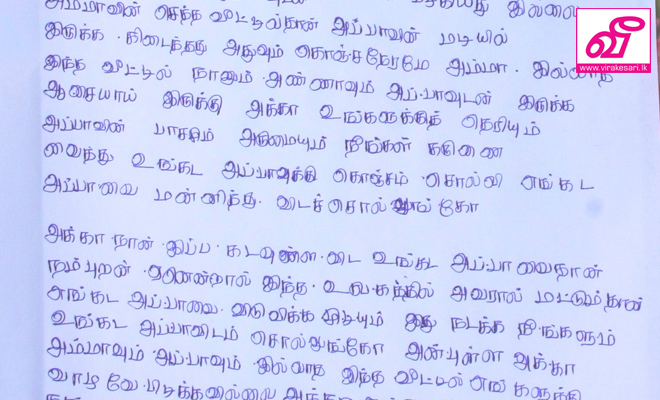 அம்மாவின் செத்த வீட்டில்தான் அப்பாவின் மடியில்
இருக்க கிடைத்தது அதுவும் கொஞ்சநேரமே அம்மா இல்லாத
இந்த வீட்டில் நானும் அண்ணாவும் அப்பாவுடன் இருக்க
ஆசையாய் இருக்கு அக்கா உங்களுக்குத் தெரியும்
அப்பாவின் பாசமும் அருமையும் நீங்கள் கருணை
வைத்து உங்கட அப்பாவுக்கு கொஞ்சம் சொல்லி எங்கட
அப்பாவை மன்னித்து விடச்சொல்லுங்கோ
அக்கா நான் இப்ப கடவுள விட உங்கட அப்பாவைதான்
நம்புறன் ஏனென்றால் இந்த உலகத்தில் அவரால் மட்டும்தான்
எங்கட அப்பாவை விடுவிக்க முடியும் இது நடக்க நீங்களும்
உங்கட அப்பாவிடம் சொல்லுங்கோ அன்புள்ள அக்கா
அம்மாவும் அப்பாவும் இல்லாத இந்த வீட்டில் எங்களுக்கு
வாழவே பிடிக்கவில்லை
வீ
www.virakesari.lk